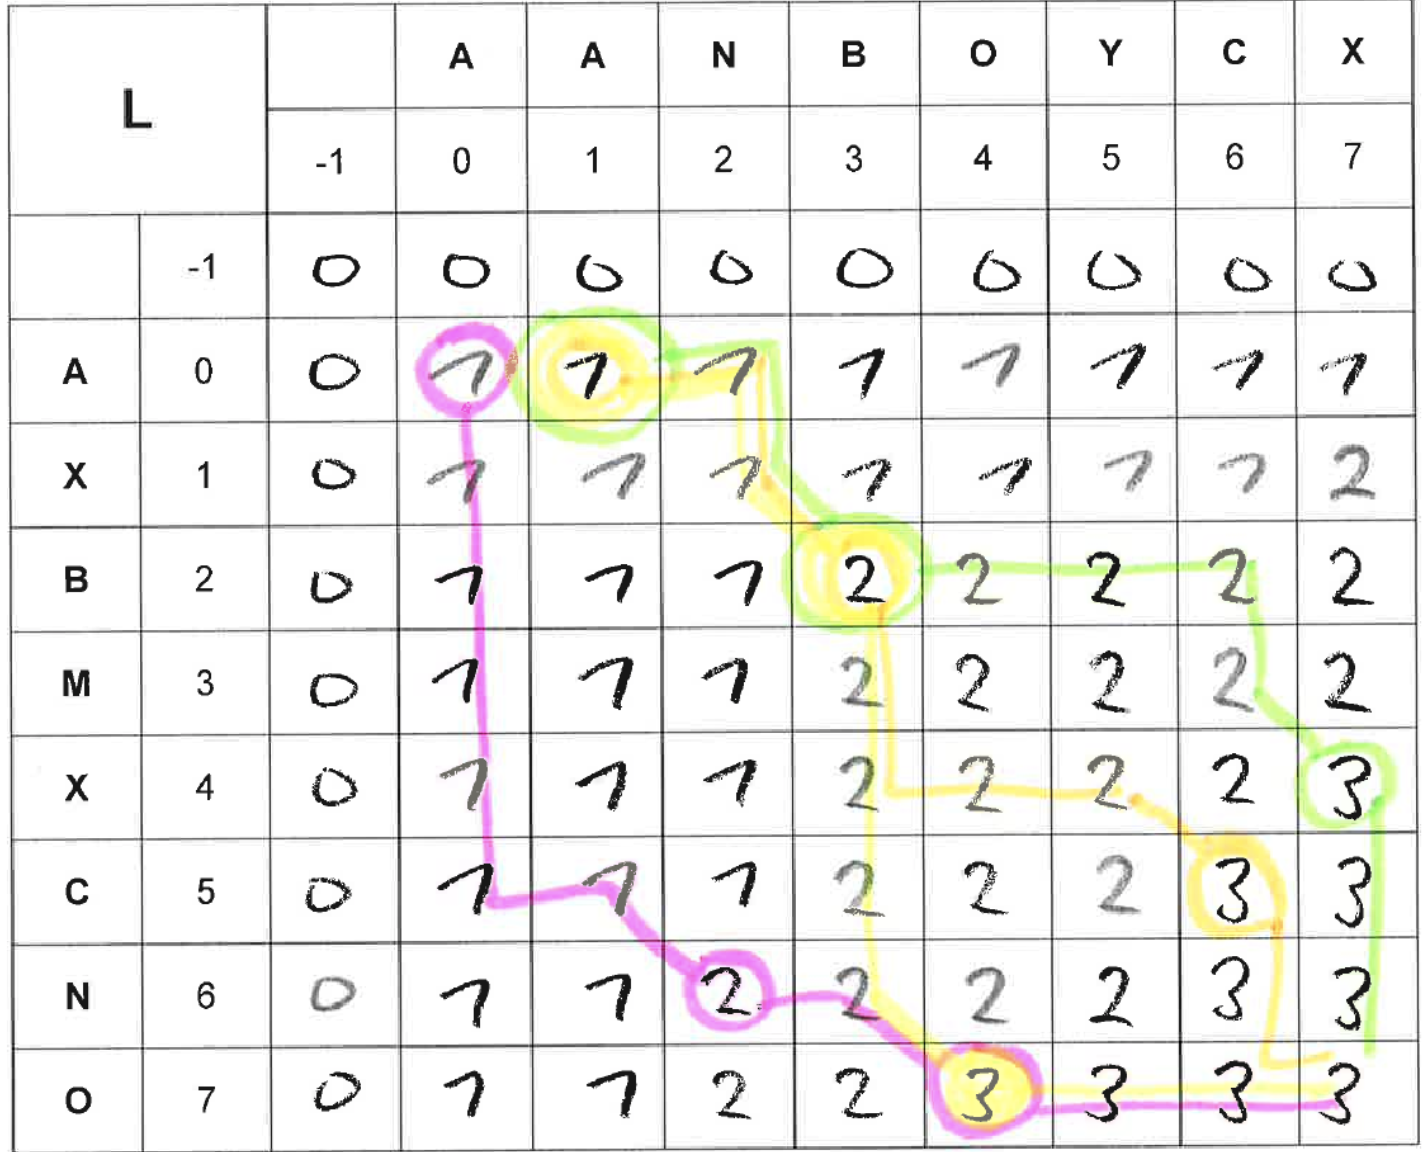 A A N B O Y C X
L
-1 0 1 2 3 4 5 6 7
-1 0 0 0 0 0 0 0 0 0
A 0 0 1 1 1 1 1 1 1 1
X 1 0 1 1 1 1 1 1 1 2
B 2 0 1 1 1 2 2 2 2 2
M 3 0 1 1 1 2 2 2 2 2
X 4 0 1 1 1 2 2 2 2 3
C 5 0 1 1 1 2 2 2 3 3
N 6 0 1 1 2 2 2 2 3 3
O 7 0 1 1 2 2 3 3 3 3